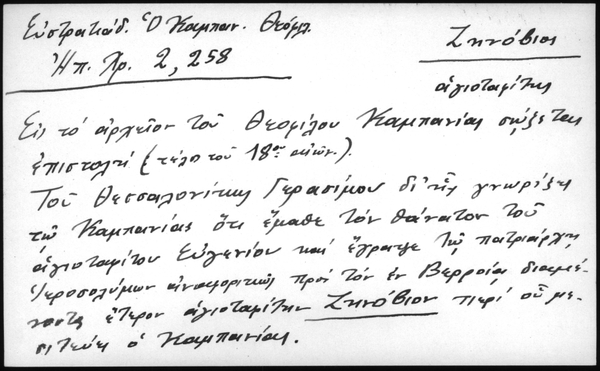 Εὐστρατιάδ. Ὁ Καμπαν. Θεόφιλ.
Ἠπ. Χρ. 2, 258
Ζηνόβιος
ἁγιοταφίτης
Εἰς τό ἀρχεῖον τοῦ Θεοφίλου Καμπανίας σώζεται
ἐπιστολή (τέλη τοῦ 18ου αἰῶν.).
Τοῦ Θεσσαλονίκης Γερασίμου δι' ἧς γνωρίζει
τῷ Καμπανίας ὅτι ἔμαθε τόν θάνατον τοῦ
ἁγιοταφίτου Εὐγενίου καί ἔγραψε τῷ πατριάρχῃ
Ἱεροσολύμων ἀναφορικῶς πρός τόν ἐν Βερροίᾳ διαμέ-
νοντα ἕτερον ἁγιοταφίτην Ζηνόβιον περί οὗ με-
σιτεύει ὁ Καμπανίας.